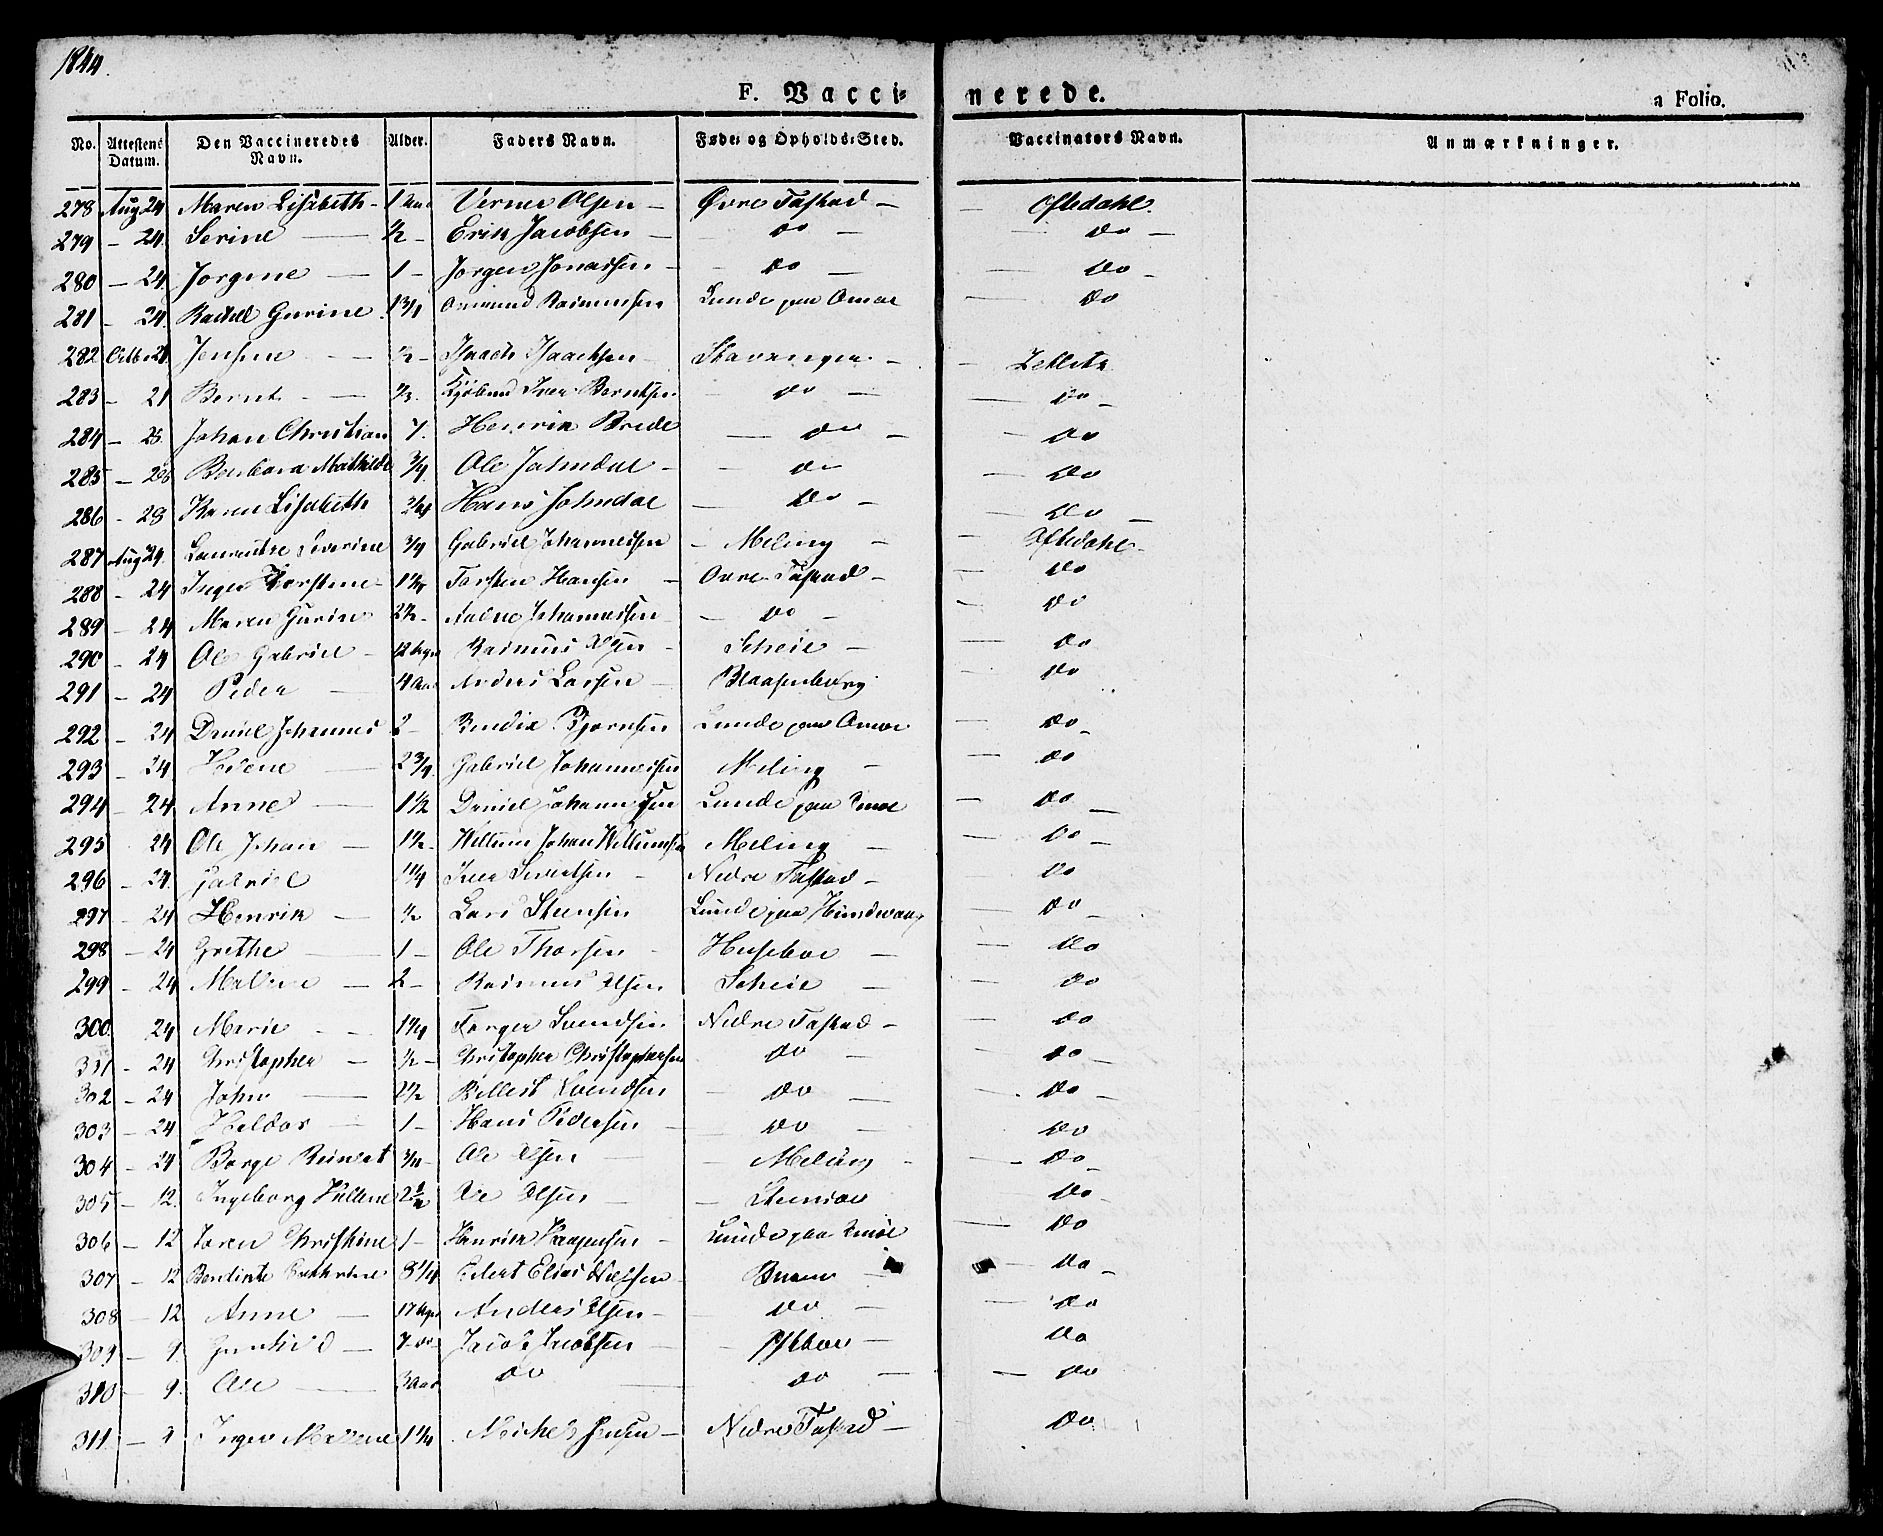 1844.
F. Vacci= nerede. a Folio.
No. Attestens Datum. Den Vaccineredes Navn. Alder. Faders Navn. Føde= og Opholds=Sted. Vaccinators Navn. Anmærkninger.
278 Aug 24 Maren Lisebeth - 1 Aar Verner Olsen - Øvre Tastad - Oftedahl.
279 - 24 Serine - 1/2 - Erik Jacobsen - do - do -
280 - 24 Jorgine - 1 - Jorgen Jonassen - do - do -
281 - 24 Rachel Gurine 1 3/4 Osmund Rasmussen Lunde paa Amøe do
282 Octbr 21 Jensine - 1/2 - Isaach Isaachsen Stavanger - Zetlitz
283 - 21 Bernt - 1/3 Kjøbmd Iver Berntsen do - do -
284 - 25 Johan Christian 7. Henrik Brede - do - do
285 - 28 Barbara Mathilde 3/4 Ole Johndal - do do
286 - 28 Karen Lisabeth 3/4 Hans Johndal - do - do -
287 Aug 24 Laurentse Severine 3/4 Gabriel Johannessen - Meling - Oftedahl -
288 - 24 Inger Torstine - Torsten Hansen - Ovre Tastad - do
289 - 24 Maren Gurine 2 1/2 - Johannessen - do - do
290 - 24 Ole Gabriel - 12 Uger Rasmus Olsen - Scheie - do
291 - 24 Peder - 4 Aar Anders Larsen - Blaasenborg do
292 - 24 Daniel Johannes 2 - Bendix Bjørnsen Lunde paa Amøe do -
293 - 24 - 2 3/4 Gabriel Johannessen Meling - do
294 - 24 Anne - 1 1/2 Daniel Johannessen Lunde paa Amøe do -
295 24 Ole Johan - 1 1/2 - Willum Johan Willumsen Meling - do -
296 - 24 Gabriel 1 1/4 Iver Sivertsen - Nedre Tastad - do
297 - 24 Henrik - 1/2 Lars Steensen Lunde paa Hundvaag do -
298 - 24 Grethe - 1 - Ole Thorsen - Husebøe - do
299 - 24 Malene - 2 - Rasmus Olsen Scheie - do
300 24 Marie - 1 1/4 Torger Svendsen Nedre Tastad - do
301 - 24 Christopher - 1/2 - Christopher Christophersen do - do -
302 - 24 John - 2 1/2 Svendsen - do - do -
303 - 24 Haldor - 1 - Hans Pedersen - do - do
304 - 24 Børge Reinert 3/4 - Ole Olsen - Meling - do -
305 - 12. Ingeborg Hellene 2 1/2 Ole Olsen - do -
306 - 12 Karen Christine 1 - Henrik Haagensen - Lunde paa Amøe do
307 - 12 3 1/4 Edert Elias Nielsen - Buøen - do -
308 - 12 Anne - 17 Uger Anders Olsen - do - do
309 - 9. Gunhild - 7 do - Jacob Jacobsen - - do
310 - 9. Ole - 3 Aar do - do - do
311 - 9 Inger Malene 1 1/4 Michel Jensen - Nedre Tastad - do